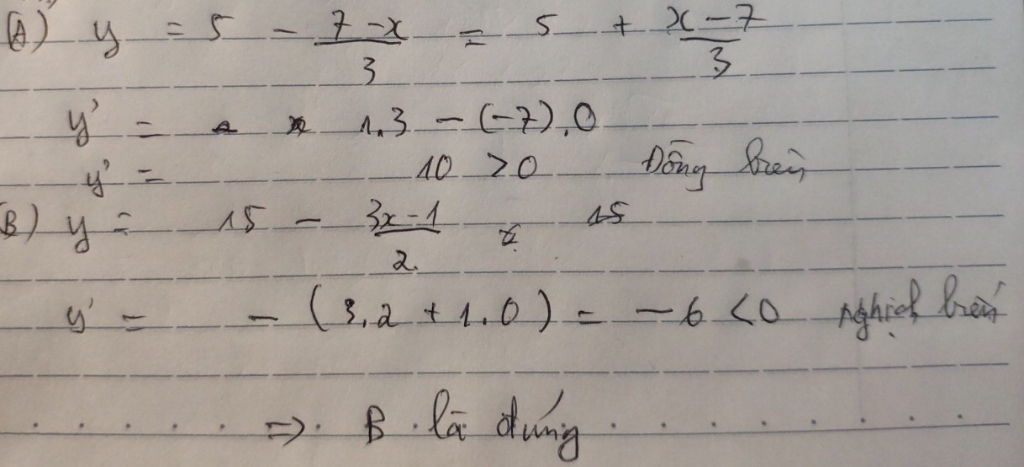 (A) y = 5 - (7-x)/3 = 5 + (x-7)/3
y' = 1.3 - (-7).0
y' = 10 > 0 Đồng biến
(B) y = 15 - (3x-1)/2 15
y' = - (3.2 + 1.0) = -6 < 0 nghịch biến
=> B là đúng